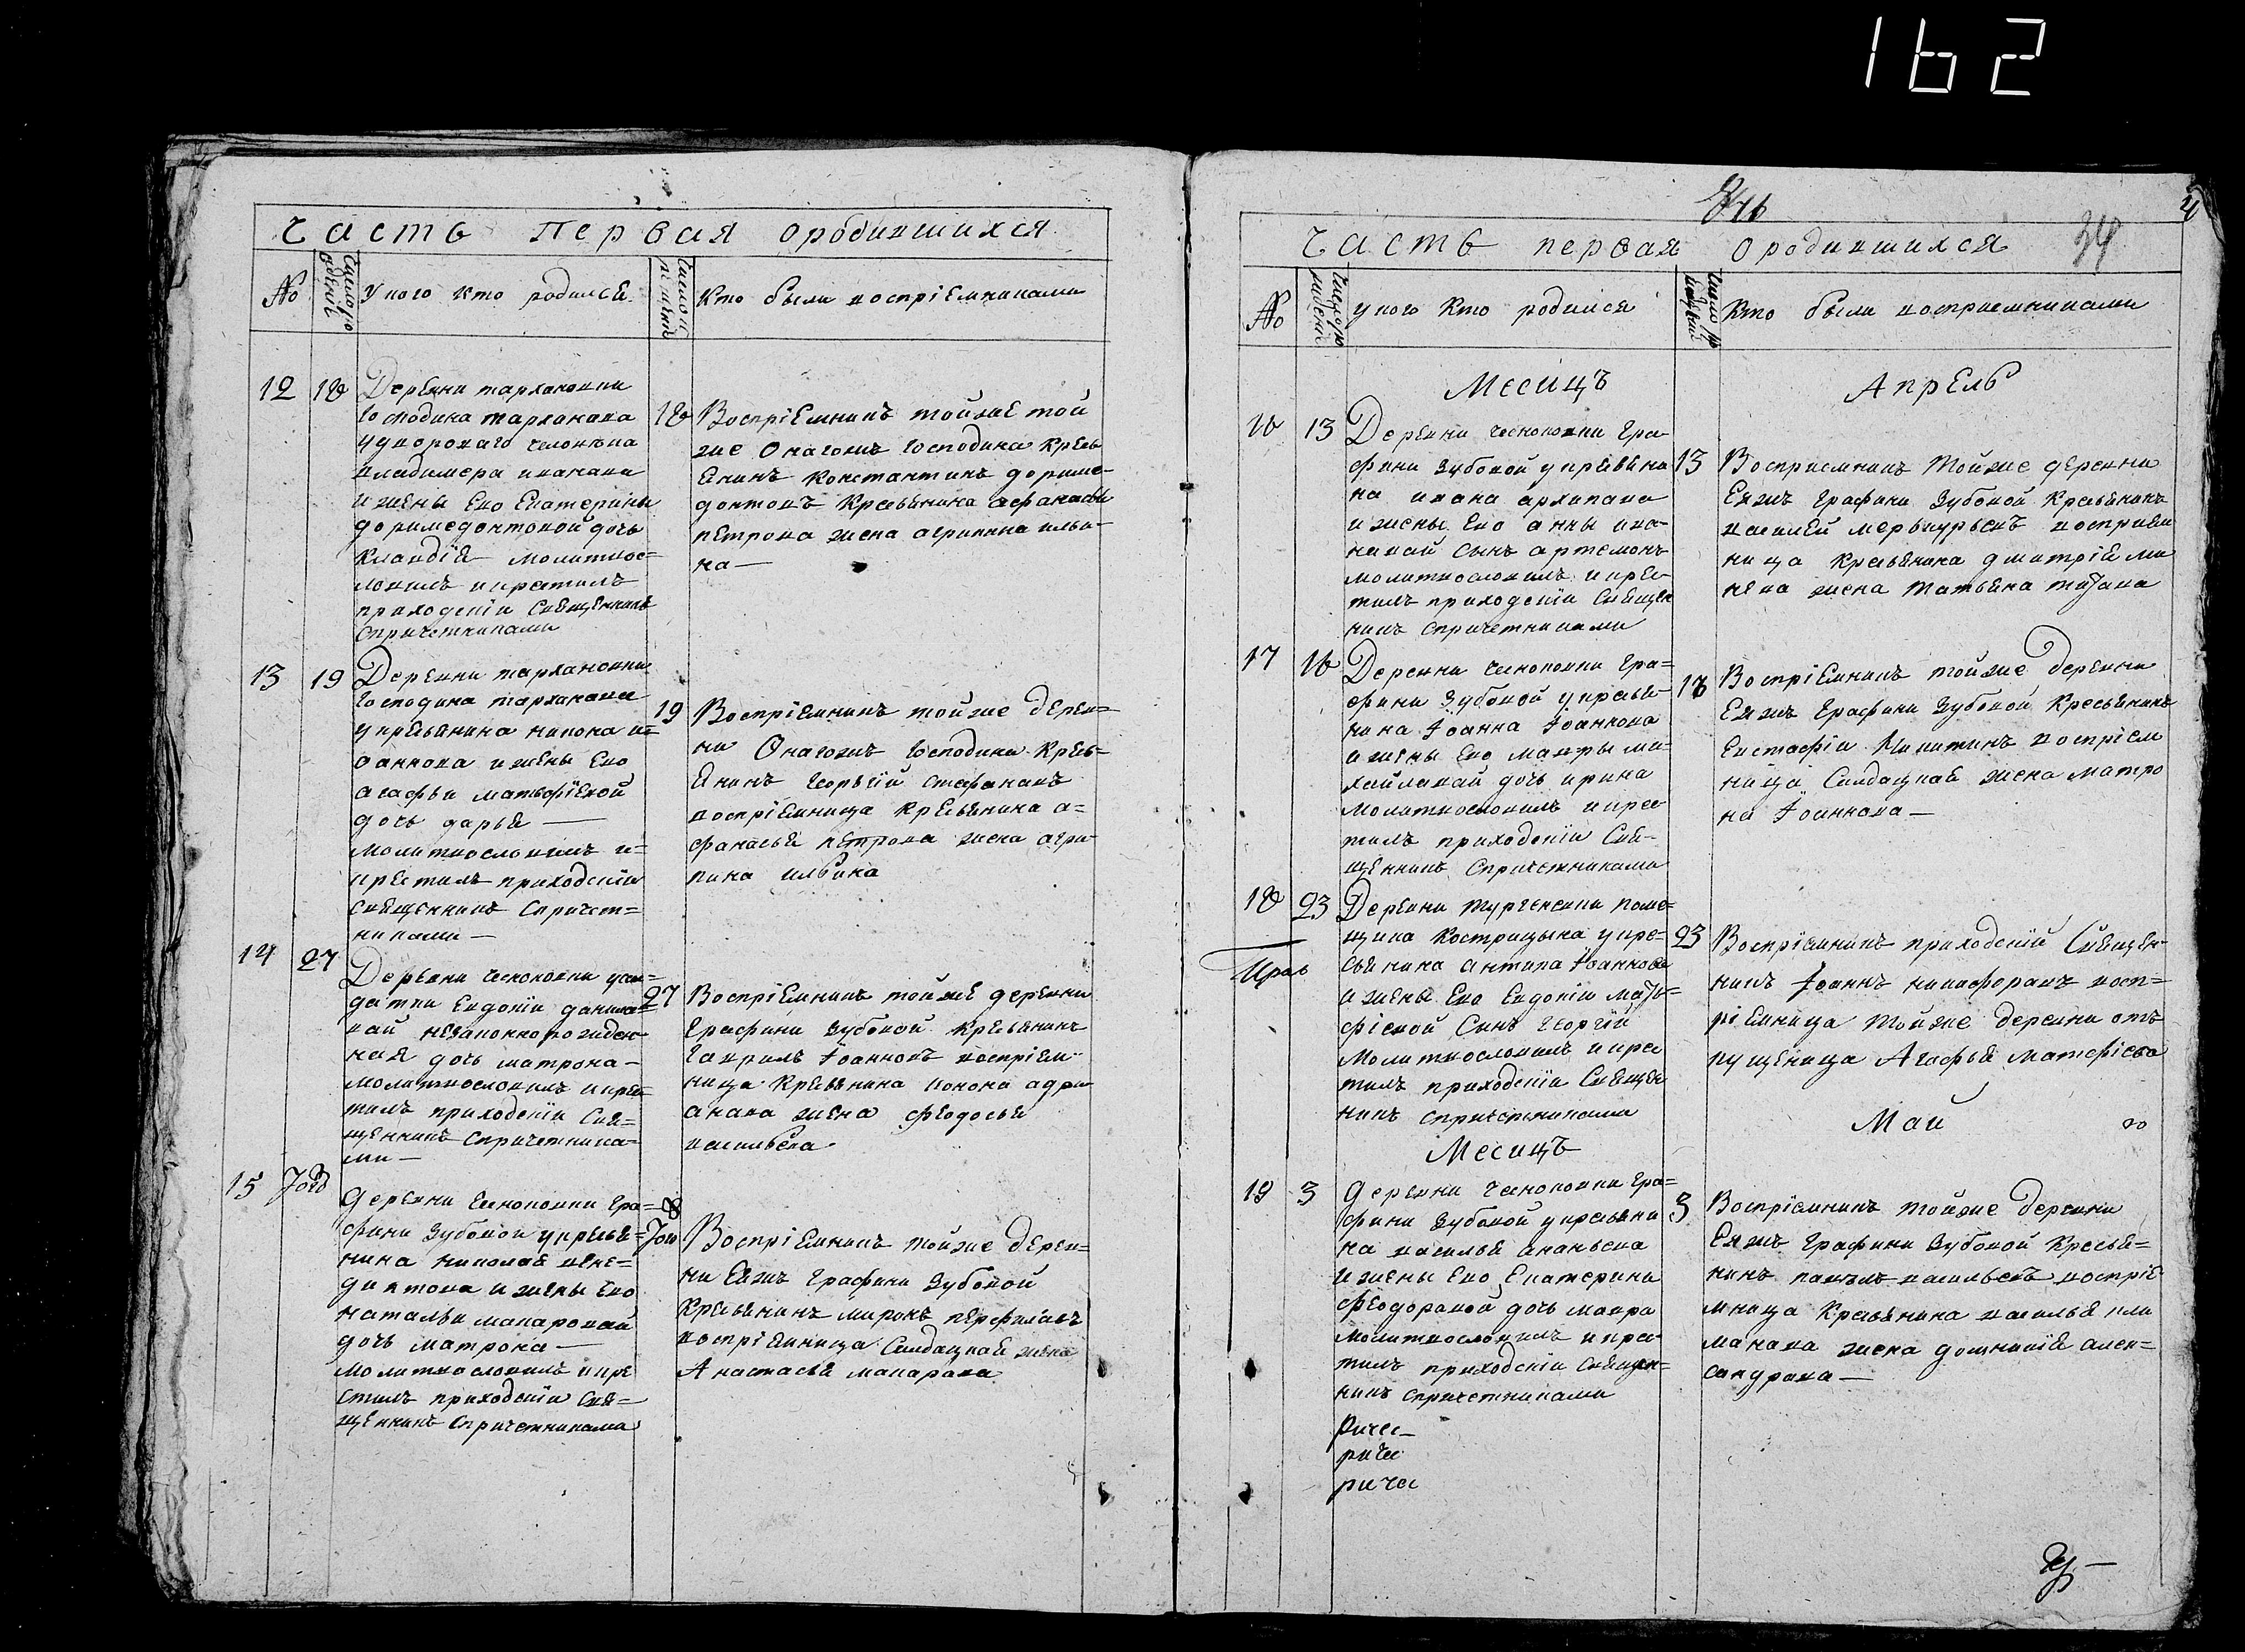 162
Часть первая ородившихся
No
У кого кто родился
Кто были воспріемниками
12 18 Деревни тархановки
господина тарханова
у двороваго человека
владимера иванова
и жены Его Екатерины
доримедонтовой дочь
клавдія молитвос=
ловилъ икрестилъ
приходскіи Священникъ
Спричетниками
18 Воспріемникъ тойже той
же Онагожъ господина Кресь
янинъ константинъ дориме-
донтовъ Кресьянина афанасья
петрова жена агрипина ильи-
на —
13 19 Деревни тархановки
господина тарханова
укресьянина никона и=
оаннова и жены Его
агафьи матьфіевой
дочь дарья —
молитвословилъ и=
крестилъ приходскіи
священникъ Спричет=
никами —
19 Воспріемникъ тойже дерев=
ни Онагожъ господина Кресь=
янинъ георьгіи Стефановъ
воспріемница кресьянина а=
фанасья петрова жена агри-
пина ильина
14 27 Деревни чесноковки усол=
датки Евдокіи данила=
вай незаконнорожден
ная дочь матрона —
молитвословилъ икрес=
тилъ приходскіи Свя=
щенникъ Спричетника=
ми —
27 Воспріемникъ тойже деревни
графини Зубовой кресьянинъ
гаврилъ Іоанновъ воспріем-
ница кресьянина конона адри
анава жена феодосья
васильева
15
деревни чесноковки гра=
фини Зубовой укресья=
нина николая вене=
диктова и жены Его
натальи макаровай
дочь матрона —
молитвословилъ икре
стилъ приходскіи Свя=
щенникъ Спричетниками
8
Воспріемникъ тойже дерев=
ни Еяжъ графини Зубовой
кресьянинъ миронъ перфилавъ
воспріемница Салдацкая жена
Анастасья макарова
34
4
Часть первая ородившихся
No
укого Кто родился
Кто были восприемниками
Месяцъ Апрель
16 13 Деревни чесноковки гра-
фини Зубовой укресьяни
на ивана архипава
и жены Его анны ива-
навай сынъ артемонъ
молитвословилъ икрес-
тилъ приходскіи Священ
никъ Спричетниками
13 Восприемникъ Тойже деревни
Еяжъ графини Зубовой Кресьянинъ
василей меркурьевъ восприем
ница кресьянина дмитрія ми
нева жена Татьяна титава
17 16 Деревни чесноковки гра=
фини Зубовой укресья-
нина Іоанна Іоаннова
и жены Его мавры ми-
хайлавай дочь ирина
молитвословилъ икрес
тилъ приходскіи Свя-
щенникъ Спричетниками
16 Воспріемникъ тойже деревни
Еяжъ графини Зубовой Кресьянинъ
Евстафіи Никитинъ воспріем
ница Салдацкая жена матро
на Іоаннова —
18 23 Деревни тургеневки поме-
щика Кострицына укре=
сьянина антипа Іоаннова
и жены Его Евдокіи мать=
фіевой Сынъ георгіи
молитвословилъ икрес
тилъ приходскіи Священ
никъ Спричетниками
23 Воспріемникъ приходскій Священ-
никъ Іоаннъ никифоравъ восп=
ріемница тойже деревни отъ
пущеница Агафья матфіева
Месяцъ Май
19 3 деревни чесноковки гра=
фини Зубовой укресьяни
на василья ананьева
и жены Его Екатерины
феодоравой дочь мавра
молитвословилъ икрес-
тилъ приходскіи Священ=
никъ Спричетниками
3 Воспріемникъ тойже деревни
Еяжъ графини Зубовой Кресья=
нинъ павелъ васильевъ воспріе
мница Кресьянина василья кли
манава жена домникія алек=
сандрова —
ричес
ричес
ричес